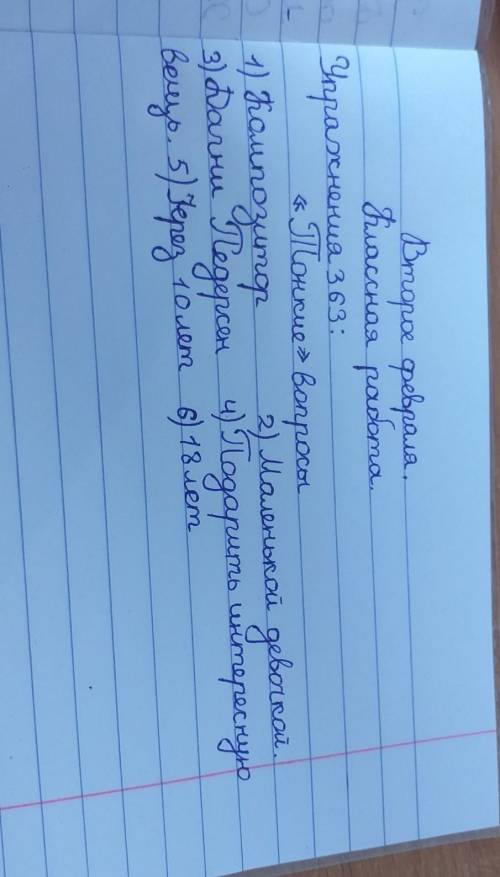 Второе февраля.
Классная работа.
Упражнения 363:
«Тонкие» вопросы
1) Композитор 2) Маленькой девочкой.
3) Дагни Педерсен 4) Подарить интересную
вещь. 5) Через 10 лет 6) 18 лет